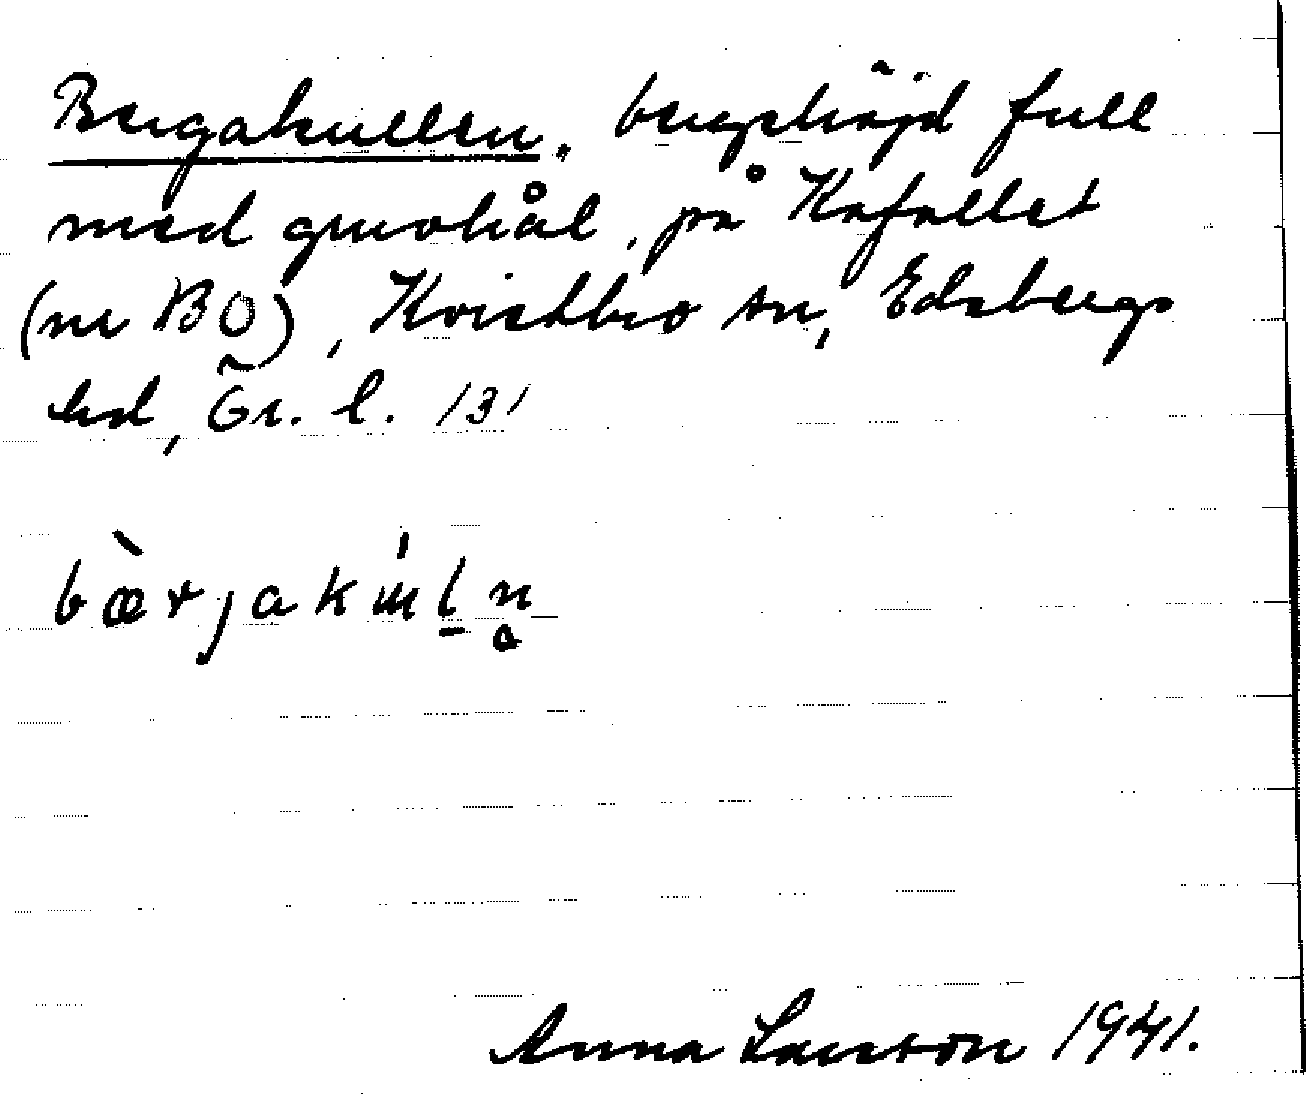 Bergakullen. bergshöjd full
med gruvhål, på Kafallet
(nr BO), Kvistbro sn, Edsbergs
hd, Ör. l. 131
bæ̀rjakɯ́ln̥
Anna Larsson 1941.